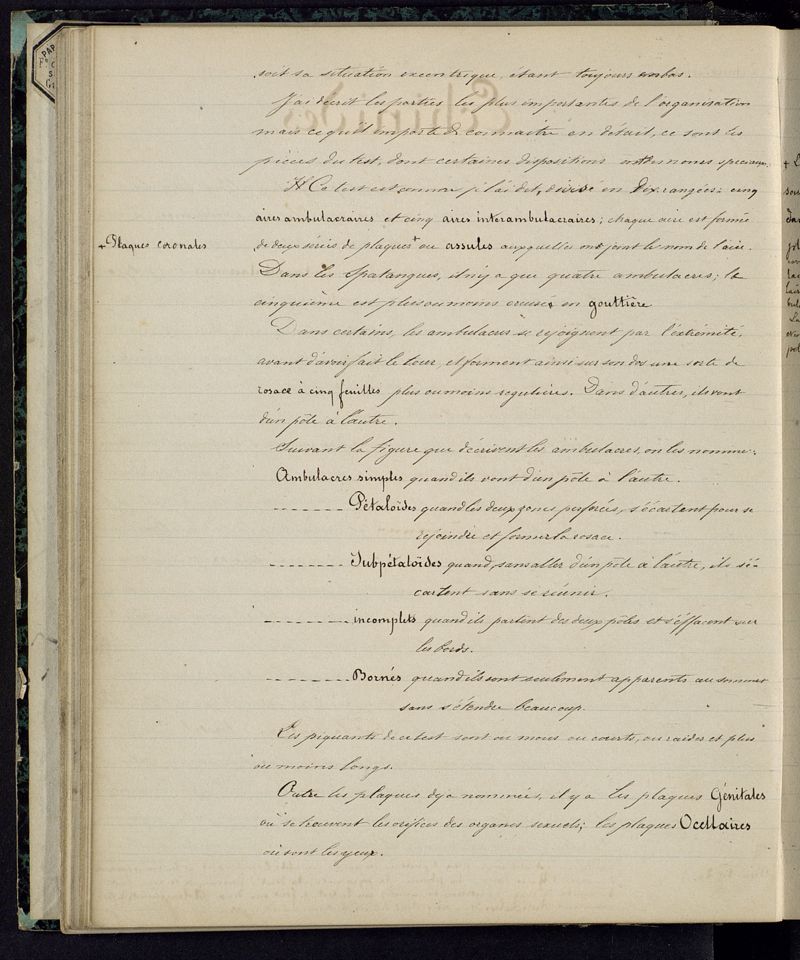 soit sa situation excentrique, étant toujours en bas.
J'ai décrit les parties les plus importantes de l'organisation
mais ce qu'il importe de connaitre en détail, ce sont les
pièces du test, dont certaines dispositions ont des noms speciaux.
Ce test est comme je l'ai dit, divisé en Dix rangées: cinq
aires ambulacraires et cinq aires interambulacraires; chaque aire est formée
+ Plaques coronales
de deux séries de plaques + ou assules auxquelles on a joint le nom de l'aire.
Dans les Spatangues, il n'y a que quatre ambulacres; le
cinquième est plus ou moins creusé en gouttière
Dans certains, les ambulacres se rejoignent par l'extrémité,
avant d'avoir fait le tour, et forment ainsi sur son dos une sorte de
rosace à cinq feuilles plus ou moins regulières. Dans d'autres, ils vont
d'un pôle à l'autre.
Suivant la figure que décrivent les ambulacres, on les nomme:
Ambulacres simples quand ils vont d'un pôle à l'autre.
------- Pétaloïdes quand les deux zones perforées, s'écartent pour se
rejoindre et former la rosace.
------- Subpétaloïdes quand, sans aller d'un pôle à l'autre, ils s'é-
cartent sans se réunir.
------- incomplets quand ils partent des deux pôles et s'effacent sur
les bords.
------- Bornés quand ils sont seulement apparents au sommet
sans s'étendre beaucoup.
Les piquants de ce test sont ou mous ou courts, ou raides et plus
ou moins longs.
Outre les plaques deja nommées, il y a les plaques Génitales
où se trouvent les orifices des organes sexuels; les plaques Ocellaires
où sont les yeux.